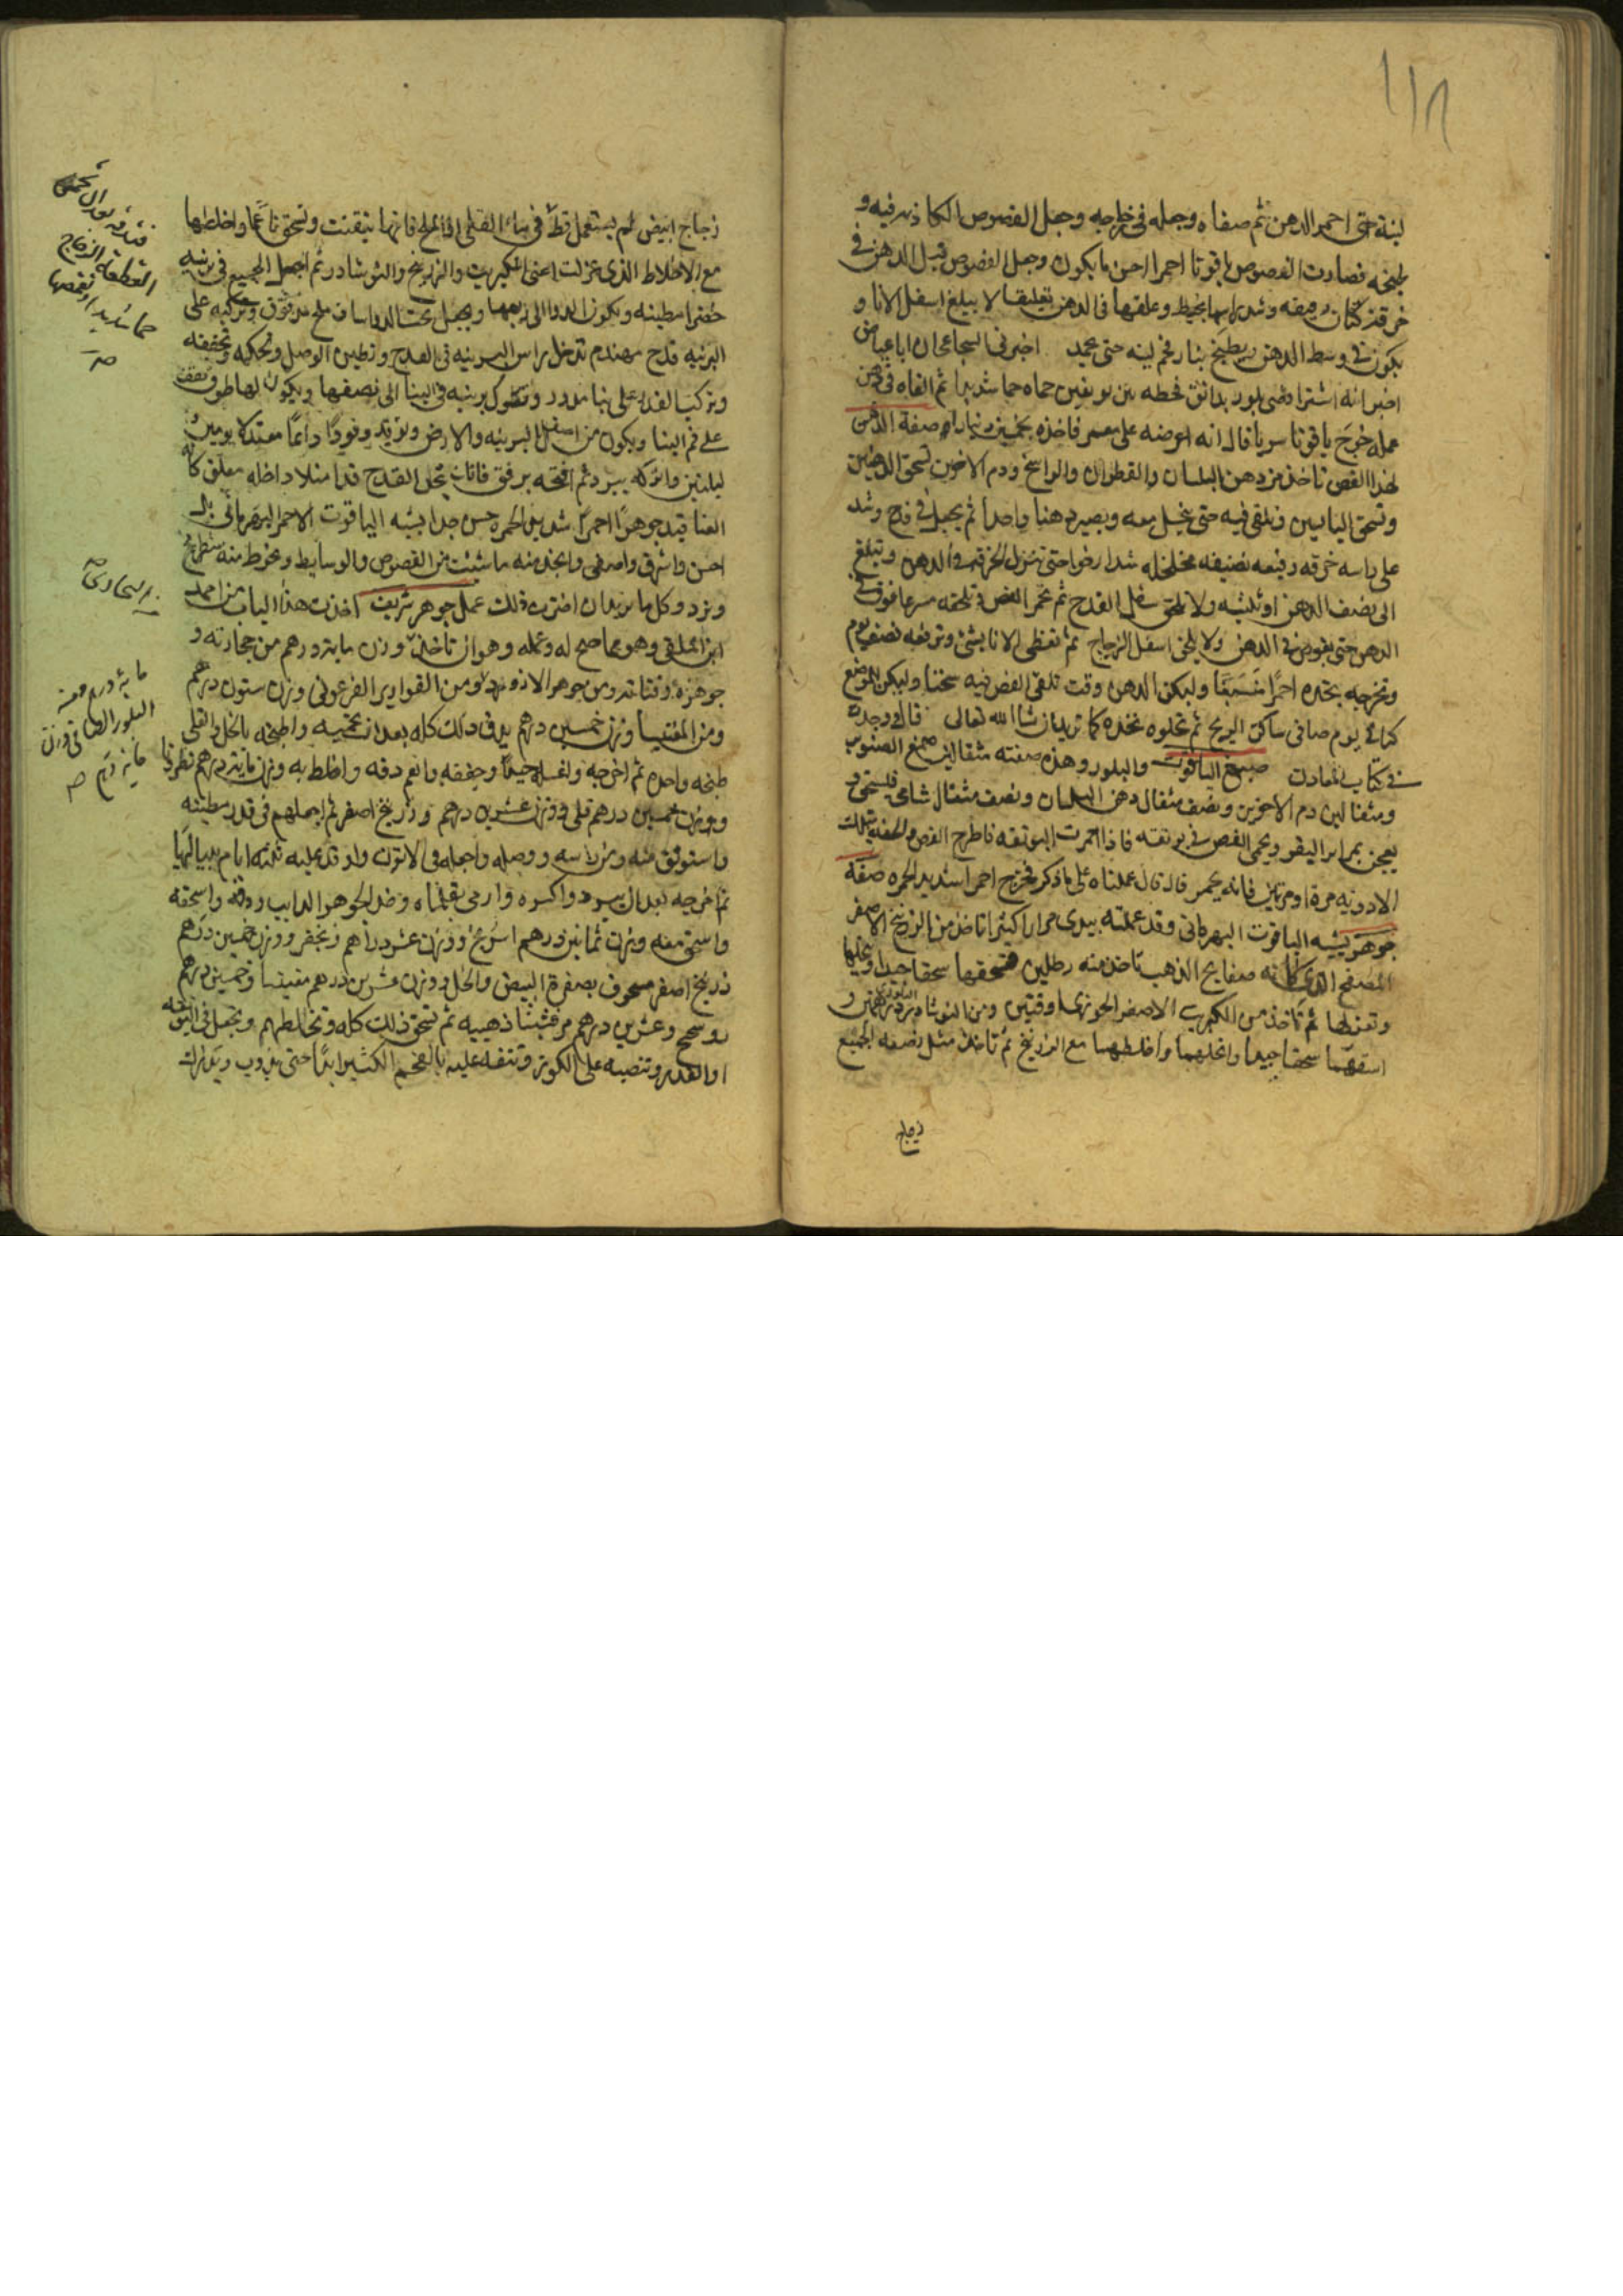 لينة حتى احمر الدهن ثم صفاه وجعله في خارجه وجعل الفصوص فيه و
طبخه فصارت الفصوص ياقوتا احمرا احسن ما يكون وجعل الفصوص قبل الدهن في
خرقة كتان رفيعة وشد راسها بخيط وعلقها في الدهن تعليقا لا يبلغ اسفل الانا و
يكون في وسط الدهن ويطبخ بنار فحم لينه حتى يحمد اخبرني ان ابا عياض
اخبر انه اشترا فص بلور بدانق فحطه بين بوتقين حماه حما شديدا ثم القاه في دهن
عمله خرج ياقوتا سريا قال انه اعرضه على فاخذه بخمسين دينارا صفة الدهن
لهذا الفص تاخذ من دهن البلسان والقطران والراسخ ودم الاخوين تسحق
وتسحق اليابسين وتلقي فيه حتى ينحل معه ويصير دهنا واحدا ثم يجعل في قدح وشد
على راسه خرقه رفيعه ضعيفه مخلخله شدا رخوا حتى تنزل الخرقه في الدهن وتبلغ
الى نصف الدهن او ثلثيه ولا تلحق سفل القدح ثم تحمي الفص
الدهن حتى يغوص في الدهن ولا يلحق اسفل الزجاج ثم تغطى الانا بشئ وتدعه نصف يوم
وتخرجه تجده احمرا مشبعا وليكن الدهن وقت تلقي الفص فيه سخنا وليكن الموضع
يوم صافي ساكن الريح ثم تجلوه تجده كما تريد ان شا الله تعالى قال وجدت
في كتاب المعادن صبغ الياقوت والبلور وهذه صفته مثقالين صمغ الصنوبر
ومثقالين دم الاخوين ونصف مثقال دهن البلسان ونصف مثقال
يعجن بمراير البقر ويحمى الفص في بوتقه فاذا احمرت البوتقه فاطرح الفص
الادويه مرة او مرتين فانه يحمر قال قال عملناه على ما ذكر فخرج احمر شديد الحمره صفة
جوهر يشبه الياقوت البهرماني وقد عملته بيدي مرارا كثيرا تاخذ من الزرنيخ الاصفر
المصفح الذي كانه صفايح الذهب تاخذ منه رطلين فتسحقها سحقا جيدا وتنخلها
وتعزلها ثم تاخذ من الكبريت الاصفر الجوزي اوقيتين ومن النوشادر درهمين و
اسحقهما سحقا جيدا وانخلهما واخلطهما مع الزرنيخ ثم تاخذ مثل نصف الجميع
زجاج
زجاج ابيض لم يستعمل قط في القلي فانها تنقت وتسحق ناعما واخلطها
مع الاخلاط الذي عزلت اعني الكبريت والزرنيخ والنوشادر ثم اجعل الجميع في برنيه
خضرا مطينه ويكون الدوا الى ربعها ويجعل تحت الدوا ساف ملح مدقوق وتركبه على
البرنيه قدح مهندم تدخل راس البرنيه في القدح وتطين الوصل وتحكمه وتجففه
وتركب القدر على بنا مدور وتكون برنيه في البنا الى نصفها ويكون لها طوق
على فم البنا ويكون من اسفل البرنيه والارض وتوقد وقودا دائما معتدلا يومين و
ليلتين واتركه يبرد ثم افتحه برفق فانك تجد القدح قد امتلا داخله معلق كانه
العناقيد جوهرا احمرا شديد الحمره حسن جدا يشبه الياقوت الاحمر البهرماني بل
احسن واشرق واصفى واتخذ منه ما شئت من الفصوص والوسايط وتخرط منه شطرنج
ونرد وكل ما تريد ان اخترت ذلك عمل جوهر شريف اخذت هذا الباب من احمد
ابن وهو مما صح له وعمله وهو ان تاخذ وزن ماية درهم من حجارته و
جوهره ومن القوارير الفرعوني وزن ستون درهم
ومن المغنيسيا وزن خمسين درهم يدق ذلك كله بعد ان تحميه واطبخه بالخل والقلي
طبخه واحده ثم اخرجه واغسله جيدا وجففه وانعم دقه واخلط به وزن ماية درهم نطرونا
ووزن خمسين درهم قلي ووزن عشرين درهم وزرنيخ اصفر ثم اجعلهم في قدر مطينه
واستوثق منه ومن راسه ووصله واجعله في الاتون واوقد عليه ثلثه ايام بلياليها
ثم اخرجه بعد ان يبرد واكسره وارمي بقلماه وخذ الجوهر الدايب ودقه واسحقه
واسحق معه وزن ثمانين درهم اسرنج ووزن عشر دراهم زنجفر ووزن خمسين درهم
زرنيخ اصفر مسحوق بصفرة البيض والخل ووزن عشرين درهم مغنيسا وخمسين درهم
روسختج وعشرين درهم مرقشيثا ذهبيه ثم تسحق ذلك كله وتخلطهم وتجعل في البوتقه
او القدر وتنصبه على الكور وتنفخ عليه بالفحم الكثير ابدا حتى يدوب ويدور
القطعة الزجاج
حما شديدا وتغمصها
صح
ماية درهم ومن
البلور الصافي وزن
ماية درهم صح